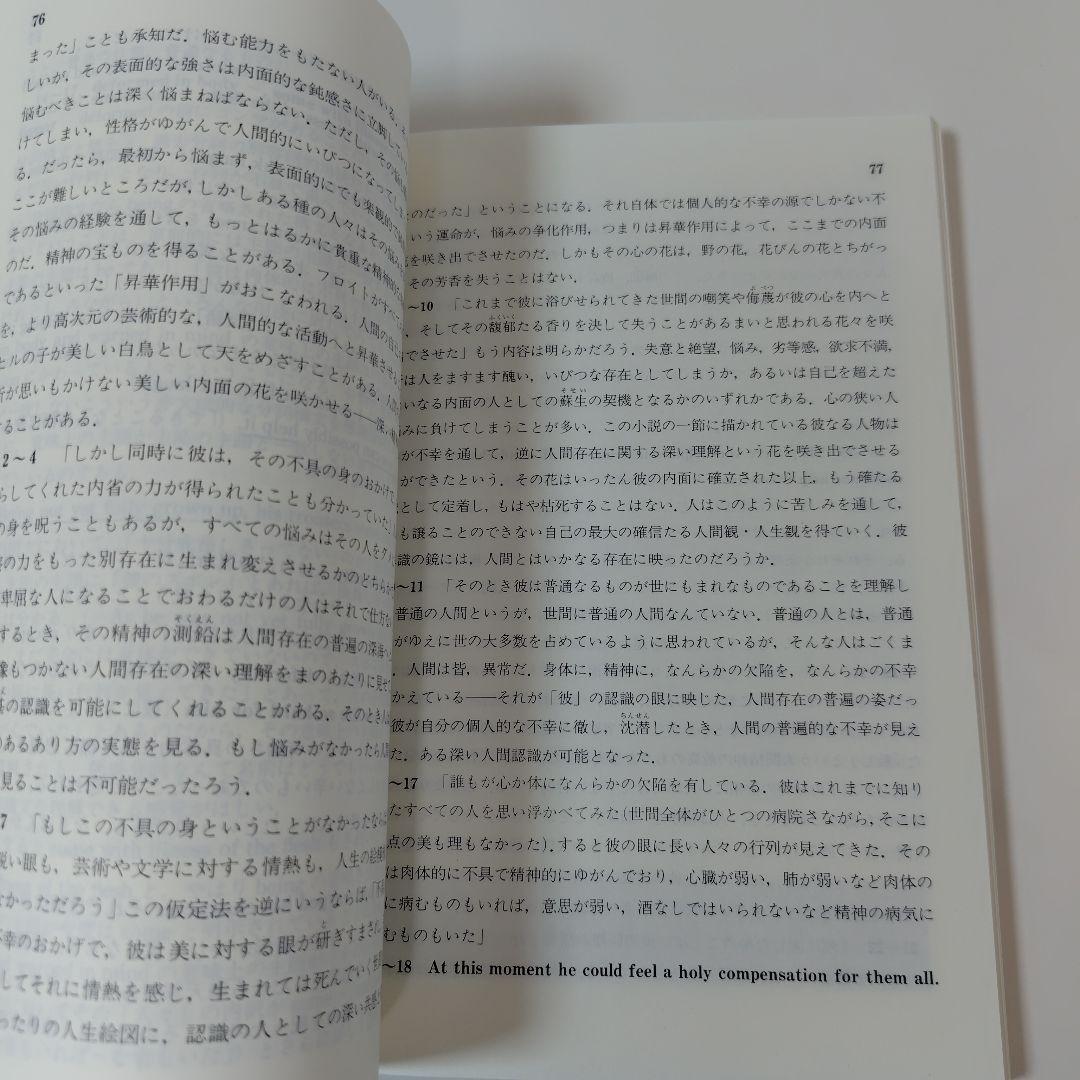 76
まった」ことも承知だ．悩む能力をもたない人がいる．そ
しいが，その表面的な強さは内面的な鈍感さに立脚してい
悩むべきことは深く悩まねばならない．ただし，その
けてしまい，性格がゆがんで人間的にいびつになってしま
る．だったら，最初から悩まず，表面的にでも楽観的で
ここが難しいところだが，しかしある種の人々はその悩み
その悩みの経験を通して，もっとはるかに貴重な精神的
のだ．精神の宝ものを得ることがある．フロイトがす
であるといった「昇華作用」がおこなわれる．人間の
を，より高次元の芸術的な，人間的な活動へと昇華させる
ヒルの子が美しい白鳥として天をめざすことがある．人
所が思いもかけない美しい内面の花を咲かせる――深い
することがある．
2～4 「しかし同時に彼は，その不具の身のおかげで，
らしてくれた内省の力が得られたことも分かっていた」
の身を呪うこともあるが，すべての悩みはその人をダメ
の力をもった別存在に生まれ変えさせるかのどちらか
卑屈な人になることでおわるだけの人はそれで仕方な
するとき，その精神の測鉛は人間存在の普遍の深海へ
像もつかない人間存在の深い理解をまのあたりに見せ
の認識を可能にしてくれることがある．そのとき人
のあるあり方の実態を見る．もし悩みがなかったら人
見ることは不可能だったろう．
7 「もしこの不具の身ということがなかったなら
鋭い眼も，芸術や文学に対する情熱も，人生の絵
なかっただろう」この仮定法を逆にいうならば，「不
不幸のおかげで，彼は美に対する眼が研ぎすまされ
してそれに情熱を感じ，生まれては死んでいく世
ったりの人生絵図に，認識の人としての深い共感
77
たのだった」ということになる．それ自体では個人的な不幸の源でしかない不
いう運命が，悩みの争化作用，つまりは昇華作用によって，ここまでの内面
を咲き出でさせたのだ．しかもその心の花は，野の花，花びんの花とちがっ
その芳香を失うことはない．
～10 「これまで彼に浴びせられてきた世間の嘲笑や侮蔑が彼の心を内へと
，そしてその馥郁たる香りを決して失うことがあるまいと思われる花々を咲
出でさせた」もう内容は明らかだろう．失意と絶望，悩み，劣等感，欲求不満，
は人をますます醜い，いびつな存在としてしまうか，あるいは自己を超えた
いなる内面の人としての蘇生の契機となるかのいずれかである．心の狭い人
みに負けてしまうことが多い．この小説の一節に描かれている彼なる人物は
が不幸を通して，逆に人間存在に関する深い理解という花を咲き出でさせる
ができたという．その花はいったん彼の内面に確立された以上，もう確たる
として定着し，もはや枯死することはない．人はこのように苦しみを通して，
も譲ることのできない自己の最大の確信たる人間観・人生観を得ていく．彼
識の鏡には，人間とはいかなる存在に映ったのだろうか．
～11 「そのとき彼は普通なるものが世にもまれなものであることを理解し
普通の人間というが，世間に普通の人間なんていない．普通の人とは，普通
がゆえに世の大多数を占めているように思われているが，そんな人はごくま
．人間は皆，異常だ．身体に，精神に，なんらかの欠陥を，なんらかの不幸
かえている――それが「彼」の認識の眼に映じた，人間存在の普遍の姿だっ
彼が自分の個人的な不幸に徹し，沈潜したとき，人間の普遍的な不幸が見え
た．ある深い人間認識が可能となった．
～17 「誰もが心か体になんらかの欠陥を有している．彼はこれまでに知り
たすべての人を思い浮かべてみた（世間全体がひとつの病院さながら，そこに
点の美も理もなかった）．すると彼の眼に長い人々の行列が見えてきた．その
は肉体的に不具で精神的にゆがんでおり，心臓が弱い，肺が弱いなど肉体の
に病むものもいれば，意思が弱い，酒なしではいられないなど精神の病気に
むものもいた」
～18 At this moment he could feel a holy compensation for them all.